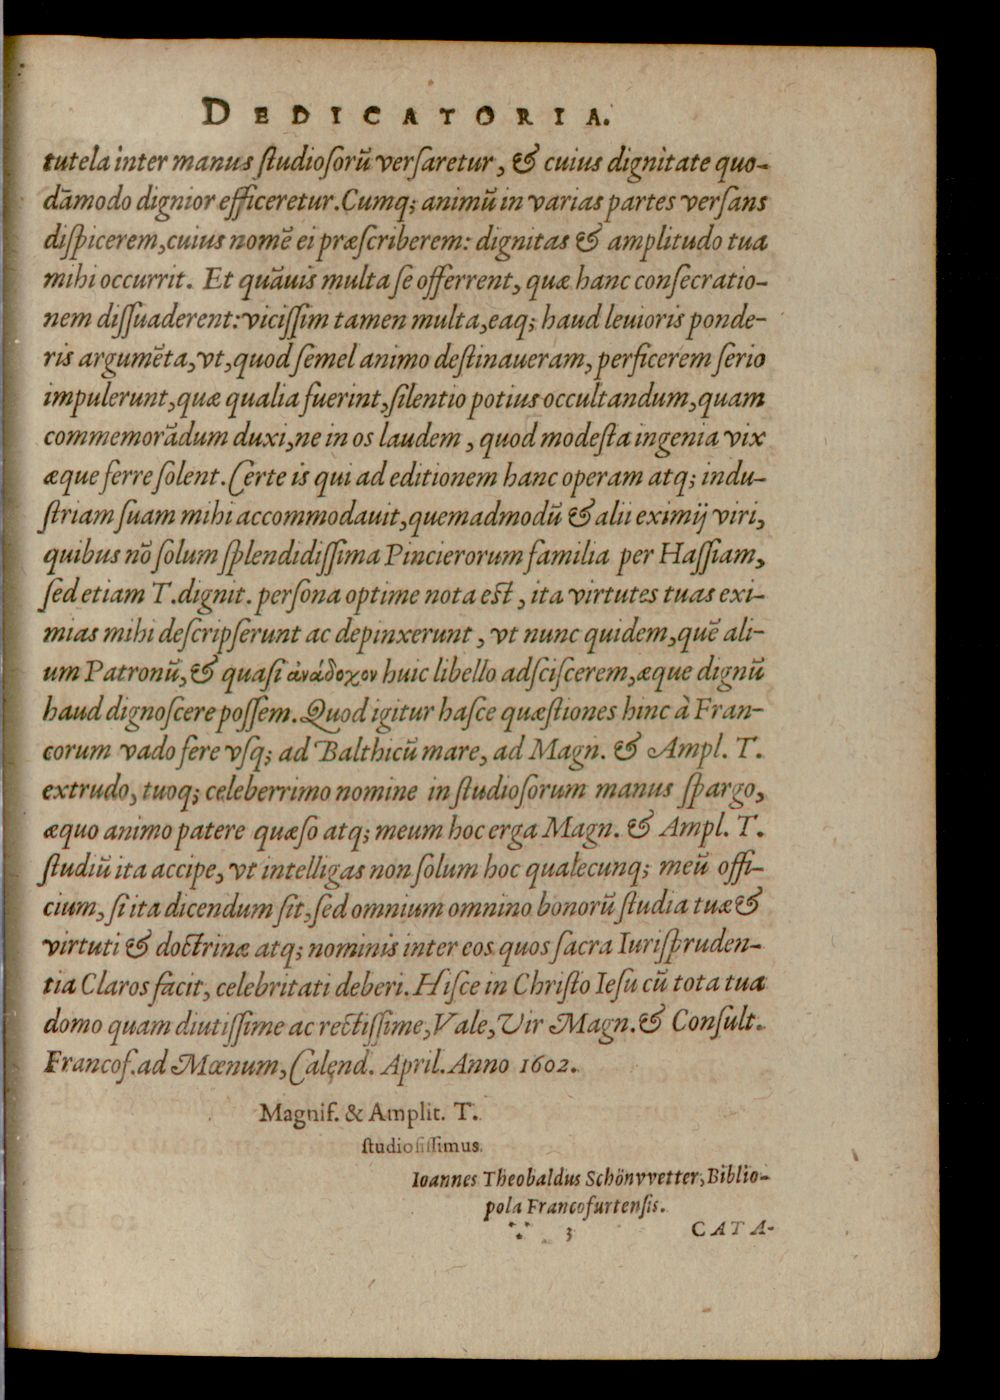 DEDICATORIA.
tutela inter manus ſtudioſorũ verſaretur, & cuius dignitate quo-
dãmodo dignior efficeretur. Cumq; animũ in varias partes verſans
diſpicerem, cuius nomẽ ei præſcriberem: dignitas & amplitudo tua
mihi occurrit. Et quãuis multa ſe offerrent, quæ hanc conſecratio-
nem diſſuaderent: viciſſim tamen multa, eaq; haud leuioris ponde-
ris argumẽta, vt, quod ſemel animo deſtinaueram, perficerem ſerio
impulerunt, quæ qualia fuerint, ſilentio potius occultandum, quam
commemorãdum duxi, ne in os laudem, quod modeſta ingenia vix
æque ferre ſolent. Certe is qui ad editionem hanc operam atq; indu-
ſtriam ſuam mihi accommodauit, quemadmodũ & alii eximij viri,
quibus nõ ſolum ſplendidiſſima Pincierorum familia per Haſſiam,
ſed etiam T. dignit. perſona optime nota est, ita virtutes tuas exi-
mias mihi deſcripſerunt ac depinxerunt, vt nunc quidem, quẽ ali-
um Patronũ, & quaſi ἀνάδοχον huic libello adſciſcerem, æque dignũ
haud dignoſcere poſſem. Quod igitur haſce quæſtiones hinc à Fran-
corum vado fere vſq; ad Balthicũ mare, ad Magn. & Ampl. T.
extrudo, tuoq; celeberrimo nomine in ſtudioſorum manus ſpargo,
æquo animo patere quæſo atq; meum hoc erga Magn. & Ampl. T.
ſtudiũ ita accipe, vt intelligas non ſolum hoc qualecunq; meũ offi-
cium, ſi ita dicendum ſit, ſed omnium omnino bonorũ ſtudia tuæ &
virtuti & doctrinæ atq; nominis inter eos quos ſacra Iuriſpruden-
tia Claros facit, celebritati deberi. Hiſce in Chriſto Ieſu cũ tota tua
domo quam diutiſſime ac rectiſſime, Vale, Vir Magn. & Conſult.
Francof. ad Mœnum, Calend. April. Anno 1602.
Magnif. & Amplit. T.
ſtudioſiſſimus.
Ioannes Theobaldus Schönvvetter, Biblio-
pola Francofurtenſis.
3 CATA-